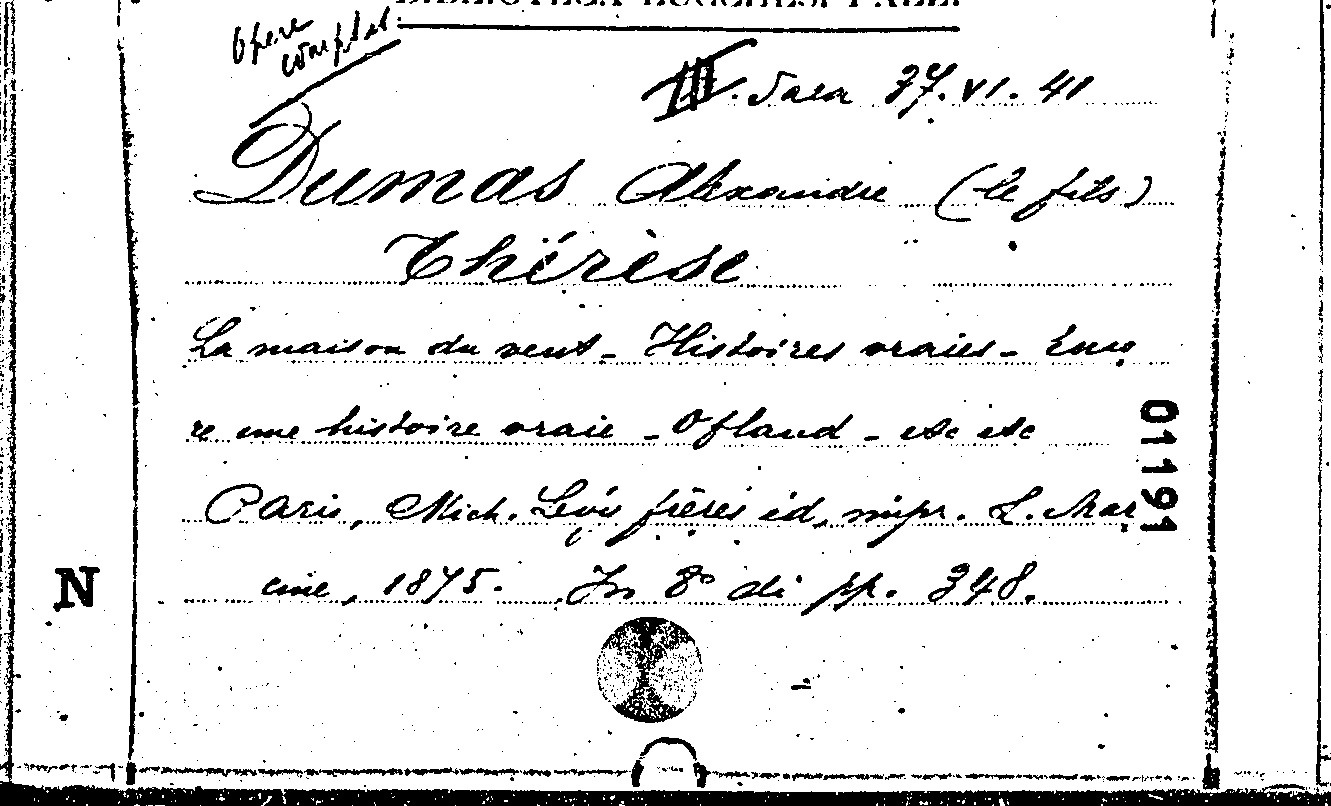 BIBLIOTECA LUCCHESI PALLI
Opere
complet.
III. Sala 37.VI.41
Dumas Alexandre (le fils)
Thérèse
La maison du vent - Histoires vraies - Enco
re une histoire vraie - Ofland - etc etc
Paris, Mich. Lévy frères éd, impr.
1875. In 8° di pp. 348.
N
01191